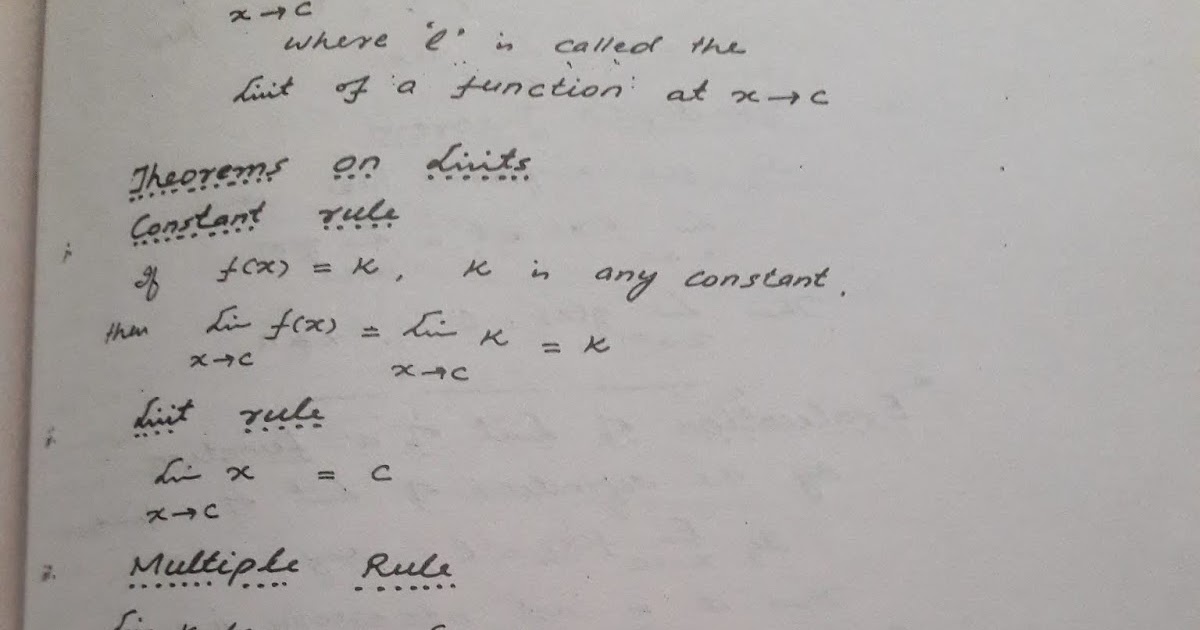 x→c
where 'l' is called the
limit of a function at x→c
Theorems on Limits
Constant rule
If f(x) = K, K is any constant.
then Lim f(x) = Lim K = K
x→c x→c
Limit rule
Lim x = c
x→c
Multiple Rule